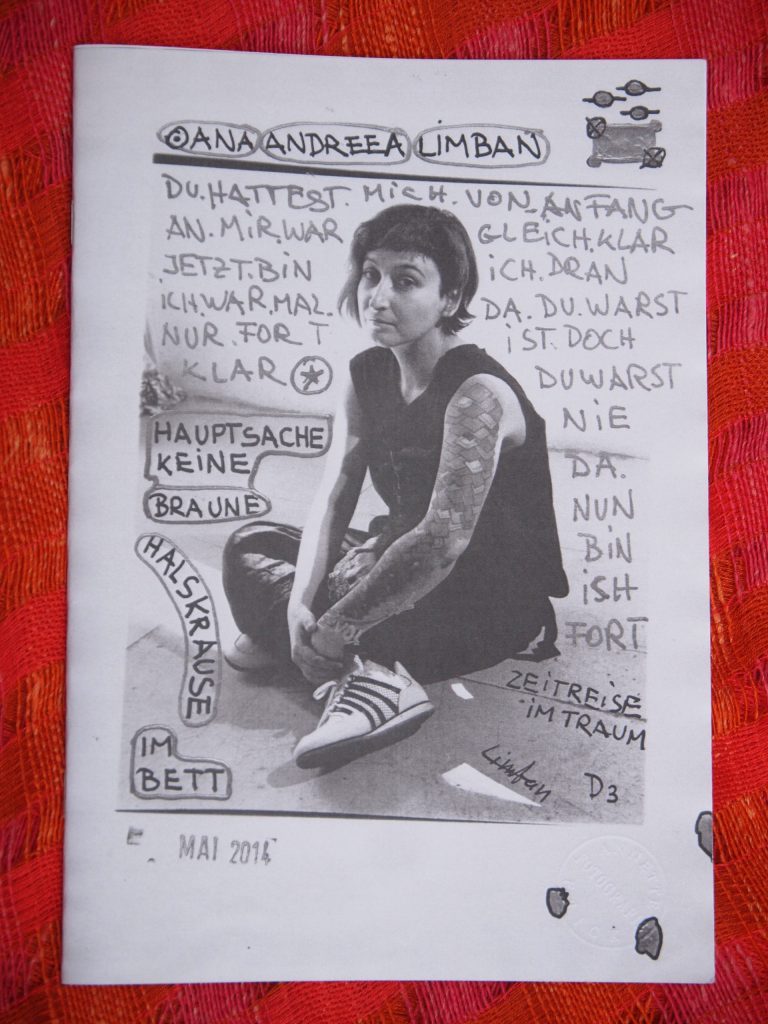 OANA ANDREEA LIMBAN
DU.HATTEST.MICH.VON.ANFANG
AN.MIR.WAR GLEICH.KLAR
JETZT.BIN ICH.DRAN
ICH.WAR.MAL. DA.DU.WARST
NUR.FORT IST.DOCH
KLAR DU WARST
NIE
DA.
NUN
BIN
ISH
FORT
HAUPTSACHE
KEINE
BRAUNE
HALSKRAUSE
IM
BETT
ZEITREISE
IM TRAUM
Limban D3
MAI 2014